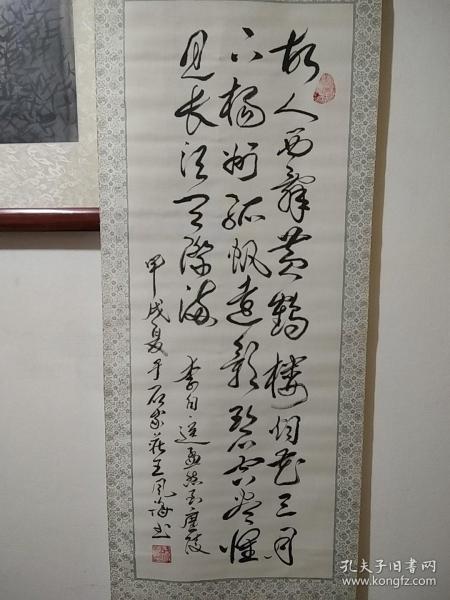 故人西辭黄鶴樓烟花三月
下楊州孤帆遠影碧空盡惟
见长江天際流
李白送孟浩然至廣陵
甲戌夏于石家莊王凤海书
孔夫子旧书网
www.kongfz.com